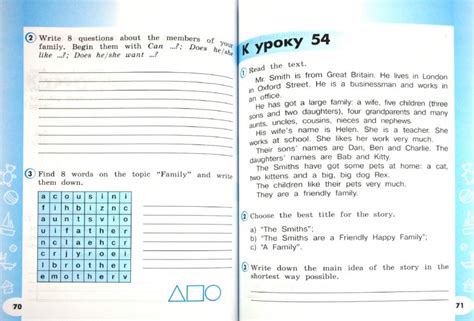 2 Write 8 questions about the members of your
family. Begin them with Can ...?; Does he/she
like ...?; Does he/she want ...?
3 Find 8 words on the topic "Family" and write
them down.
a c o u s i n i
f i h b i z n c
a u n t s v i o
u i f a t h e r
n c l a e h c r
c r j y r o e i
l b r o t h e r
e m o t h e r v
70
К уроку 54
1 Read the text.
Mr. Smith is from Great Britain. He lives in London
in Oxford Street. He is a businessman and works in
an office.
He has got a large family: a wife, five children (three
sons and two daughters), four grandparents and many
aunts, uncles, cousins, nieces and nephews.
His wife's name is Helen. She is a teacher. She
works at school. She likes her work very much.
Their sons' names are Dan, Ben and Charlie. The
daughters' names are Bab and Kitty.
The Smiths have got some pets at home: a cat,
two kittens and a big, big dog Rex.
The children like their pets very much.
They are a friendly family.
2 Choose the best title for the story.
a) "The Smiths";
b) "The Smiths are a Friendly Happy Family";
c) "A Family".
3 Write down the main idea of the story in the
shortest way possible.
71